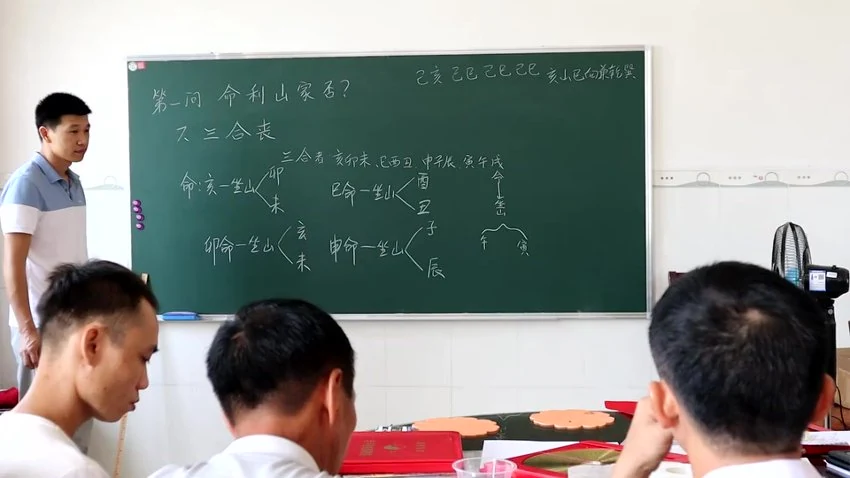 己亥 己巳 己巳 己巳 亥山巳向兼乾巽
第一问 命利山家否?
不三合丧
三合者 亥卯未、巳酉丑 申子辰、寅午戌
命:亥一坐山 卯 未
巳命一坐山 酉 丑
命 坐山 午 寅
卯命一坐山 亥 未
申命一坐山 子 辰